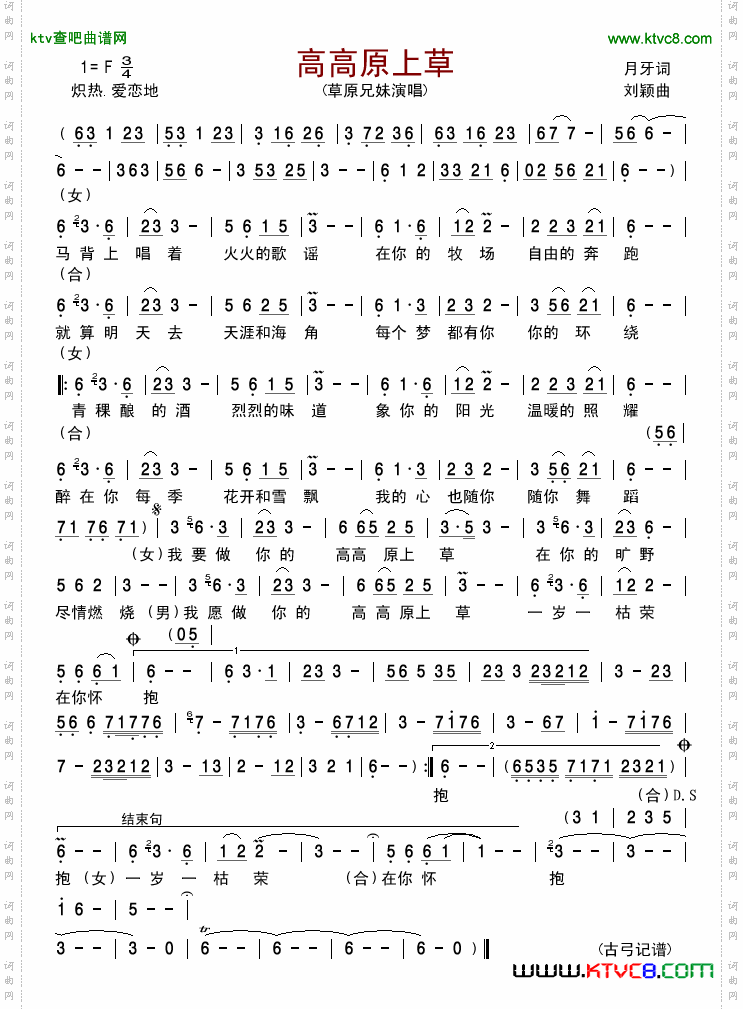 ktv查吧曲谱网
www.ktvc8.com
高高原上草
1=F 3/4
炽热.爱恋地
(草原兄妹演唱)
月牙词
刘颖曲
( 63 1 23 | 53 1 23 | 3 16 26 | 3 72 36 | 63 16 23 | 67 7 - | 56 6 -
6 - - | 363 | 56 6 - | 3 53 25 | 3 - - | 6 1 2 | 33 21 6 | 02 56 21 | 6 - - )
(女)
6 2 3·6 | 23 3 - | 5 6 1 5 | 3 - - | 6 1·6 | 12 2 - | 2 2 3 21 | 6 - - |
马背上 唱着 火火的歌谣 在你的牧场 自由的奔跑
(合)
6 2 3·6 | 23 3 - | 5 6 2 5 | 3 - - | 6 1·3 | 2 3 2 - | 3 56 21 | 6 - - |
就算明天去 天涯和海角 每个梦都有你 你的环绕
(女)
|: 6 2 3·6 | 23 3 - | 5 6 1 5 | 3 - - | 6 1·6 | 12 2 - | 2 2 3 21 | 6 - - |
青稞酿的酒 烈烈的味道 象你的阳光 温暖的照耀
(合)
(56 |
6 2 3·6 | 23 3 - | 5 6 1 5 | 3 - - | 6 1·3 | 2 3 2 - | 3 56 21 | 6 - - |
醉在你每季 花开和雪飘 我的心也随你 随你舞蹈
71 76 71) | 3 5 6·3 | 23 3 - | 6 65 2 5 | 3·5 3 - | 3 5 6·3 | 23 6 - |
(女)我要做你的 高高原上草 在你的旷野
5 6 2 | 3 - - | 3 5 6·3 | 23 3 - | 6 65 2 5 | 3 - - | 6 2 3·6 | 12 2 - |
尽情燃烧 (男)我愿做你的 高高原上草 一岁一枯荣
(05 |
1
5 6 61 | 6 - - | 6 3·1 | 23 3 - | 56 5 35 | 23 3 23212 | 3 - 23 |
在你怀 抱
56 6 71776 | 6 7 - 7176 | 3 - 6712 | 3 - 7176 | 3 - 67 | 1 - 7176 |
2
7 - 23212 | 3 - 13 | 2 - 12 | 3 2 1 | 6 - - ) :| 6 - - | (6535 7171 2321) |
抱 (合)D.S
结束句
(3 1 | 2 3 5 |
6 - - | 6 2 3·6 | 1 2 2 - | 3 - - | 5 6 6 1 | 1 - - | 2 3 - - | 3 - - |
抱(女)一岁一枯荣 (合)在你怀 抱
1 6 - | 5 - - |
3 - - | 3 - 0 | tr 6 - - | 6 - - | 6 - - | 6 - 0 ) ||
(古弓记谱)
WWW.KTVC8.COM